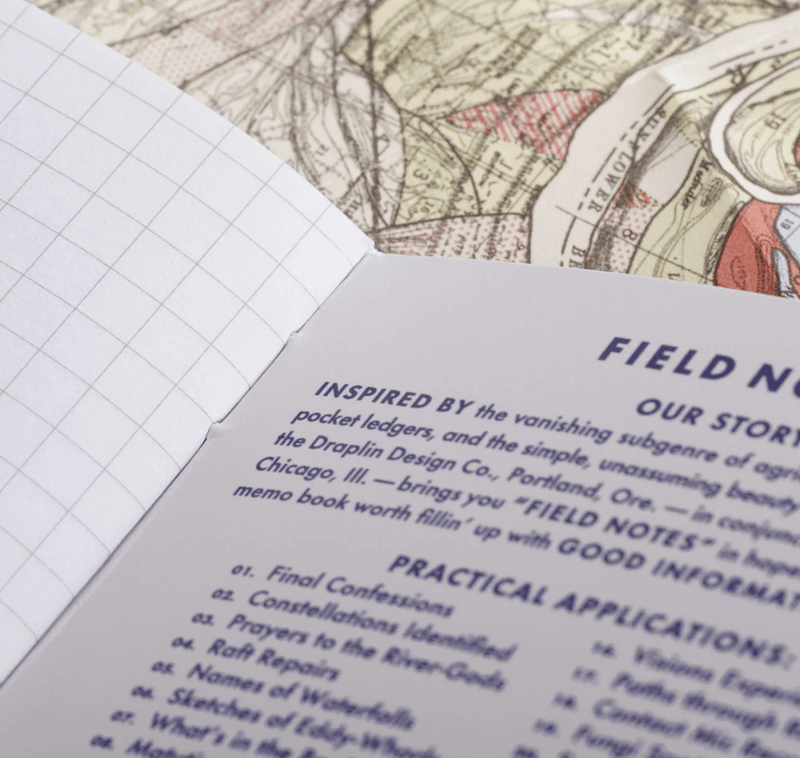 SUNFLOWER
BE
19
19
8
FIELD NO
OUR STORY
INSPIRED BY the vanishing subgenre of agri
pocket ledgers, and the simple, unassuming beauty
the Draplin Design Co., Portland, Ore. — in conjunc
Chicago, Ill. — brings you "FIELD NOTES" in hope
memo book worth fillin' up with GOOD INFORMAT
PRACTICAL APPLICATIONS:
01. Final Confessions
02. Constellations Identified
03. Prayers to the River-Gods
04. Raft Repairs
05. Names of Waterfalls
06. Sketches of Eddy-Wheels
07. What's in the
08.
16. Visions Experi
17. Paths through
18. Contact
19. Fungi